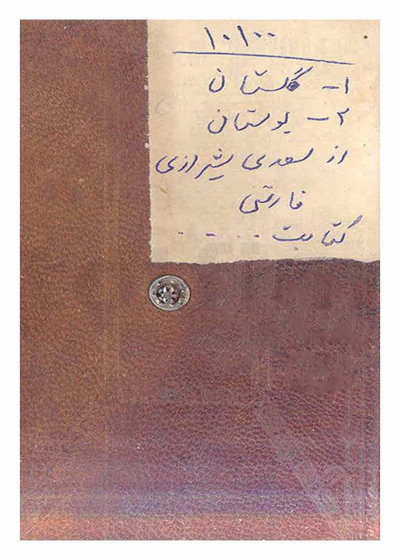 ۱۰۱۰۰
۱- گلستان
۲- بوستان
از سعدی شیرازی
فارسی
کتابت . . . . .